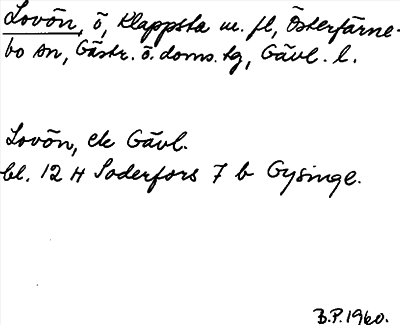 Lovön, ö, Klappsta m. fl, Österfärne-
bo sn, Gästr. ö. doms. tg, Gävl. l.
Lovön, ek Gävl.
bl. 12 H Söderfors 7 b Gysinge.
B.P. 1960.